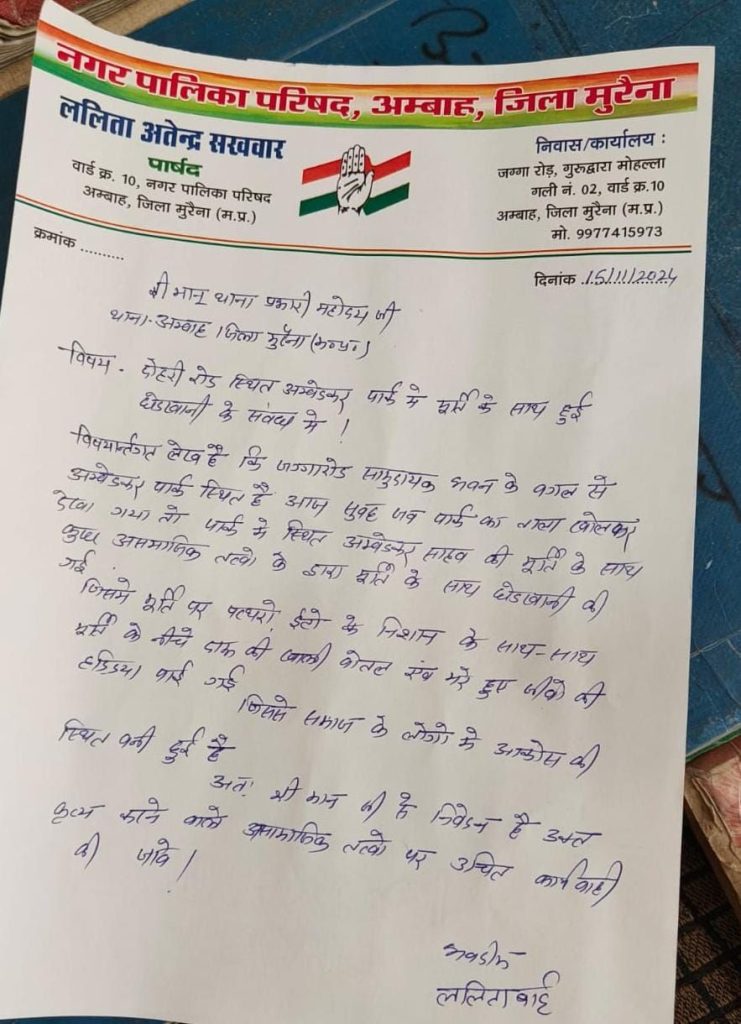 नगर पालिका परिषद, अम्बाह, जिला मुरैना
ललिता अतेन्द्र सखवार
पार्षद
वार्ड क्र. 10, नगर पालिका परिषद
अम्बाह, जिला मुरैना (म.प्र.)
निवास/कार्यालय :
जग्गा रोड़, गुरुद्वारा मोहल्ला
गली नं. 02, वार्ड क्र.10
अम्बाह, जिला मुरैना (म.प्र.)
मो. 9977415973
क्रमांक ..........
दिनांक 15/11/2024
श्री मान् थाना प्रभारी महोदय जी
थाना-अम्बाह जिला मुरैना (म०प्र०)
विषय - पोहरी रोड स्थित अम्वेडकर पार्क मे मूर्ति के साथ हुई
छेडखानी के संवंध मे !
विषयान्तर्गत लेख है कि जग्गारोड सामुदायक भवन के वगल से
अम्वेडकर पार्क स्थित है आज सुवह जव पार्क का ताला खोलकर
देखा गया तो पार्क मे स्थित अम्वेडकर साहव की मूर्ति के साथ
कुछ असमाजिक तत्वो के द्वारा मूर्ति के साथ छेडखानी की
गई
जिसमे मूर्ति पर पत्थरो, ईटो के निशान के साथ-साथ
मूर्ति के नीचे दारू की खाली वोतल एंव मरे हुए जीवो की
हडिडया पाई गई
जिससे समाज के लोगो मे आक्रोस की
स्थित वनी हुई है
अतः श्री मान जी से निवेदन है उक्त
कृत्य करने वाले असामाजिक तत्वो पर उचित कार्यवाही
की जावे !
भवदीय
ललिता वाई